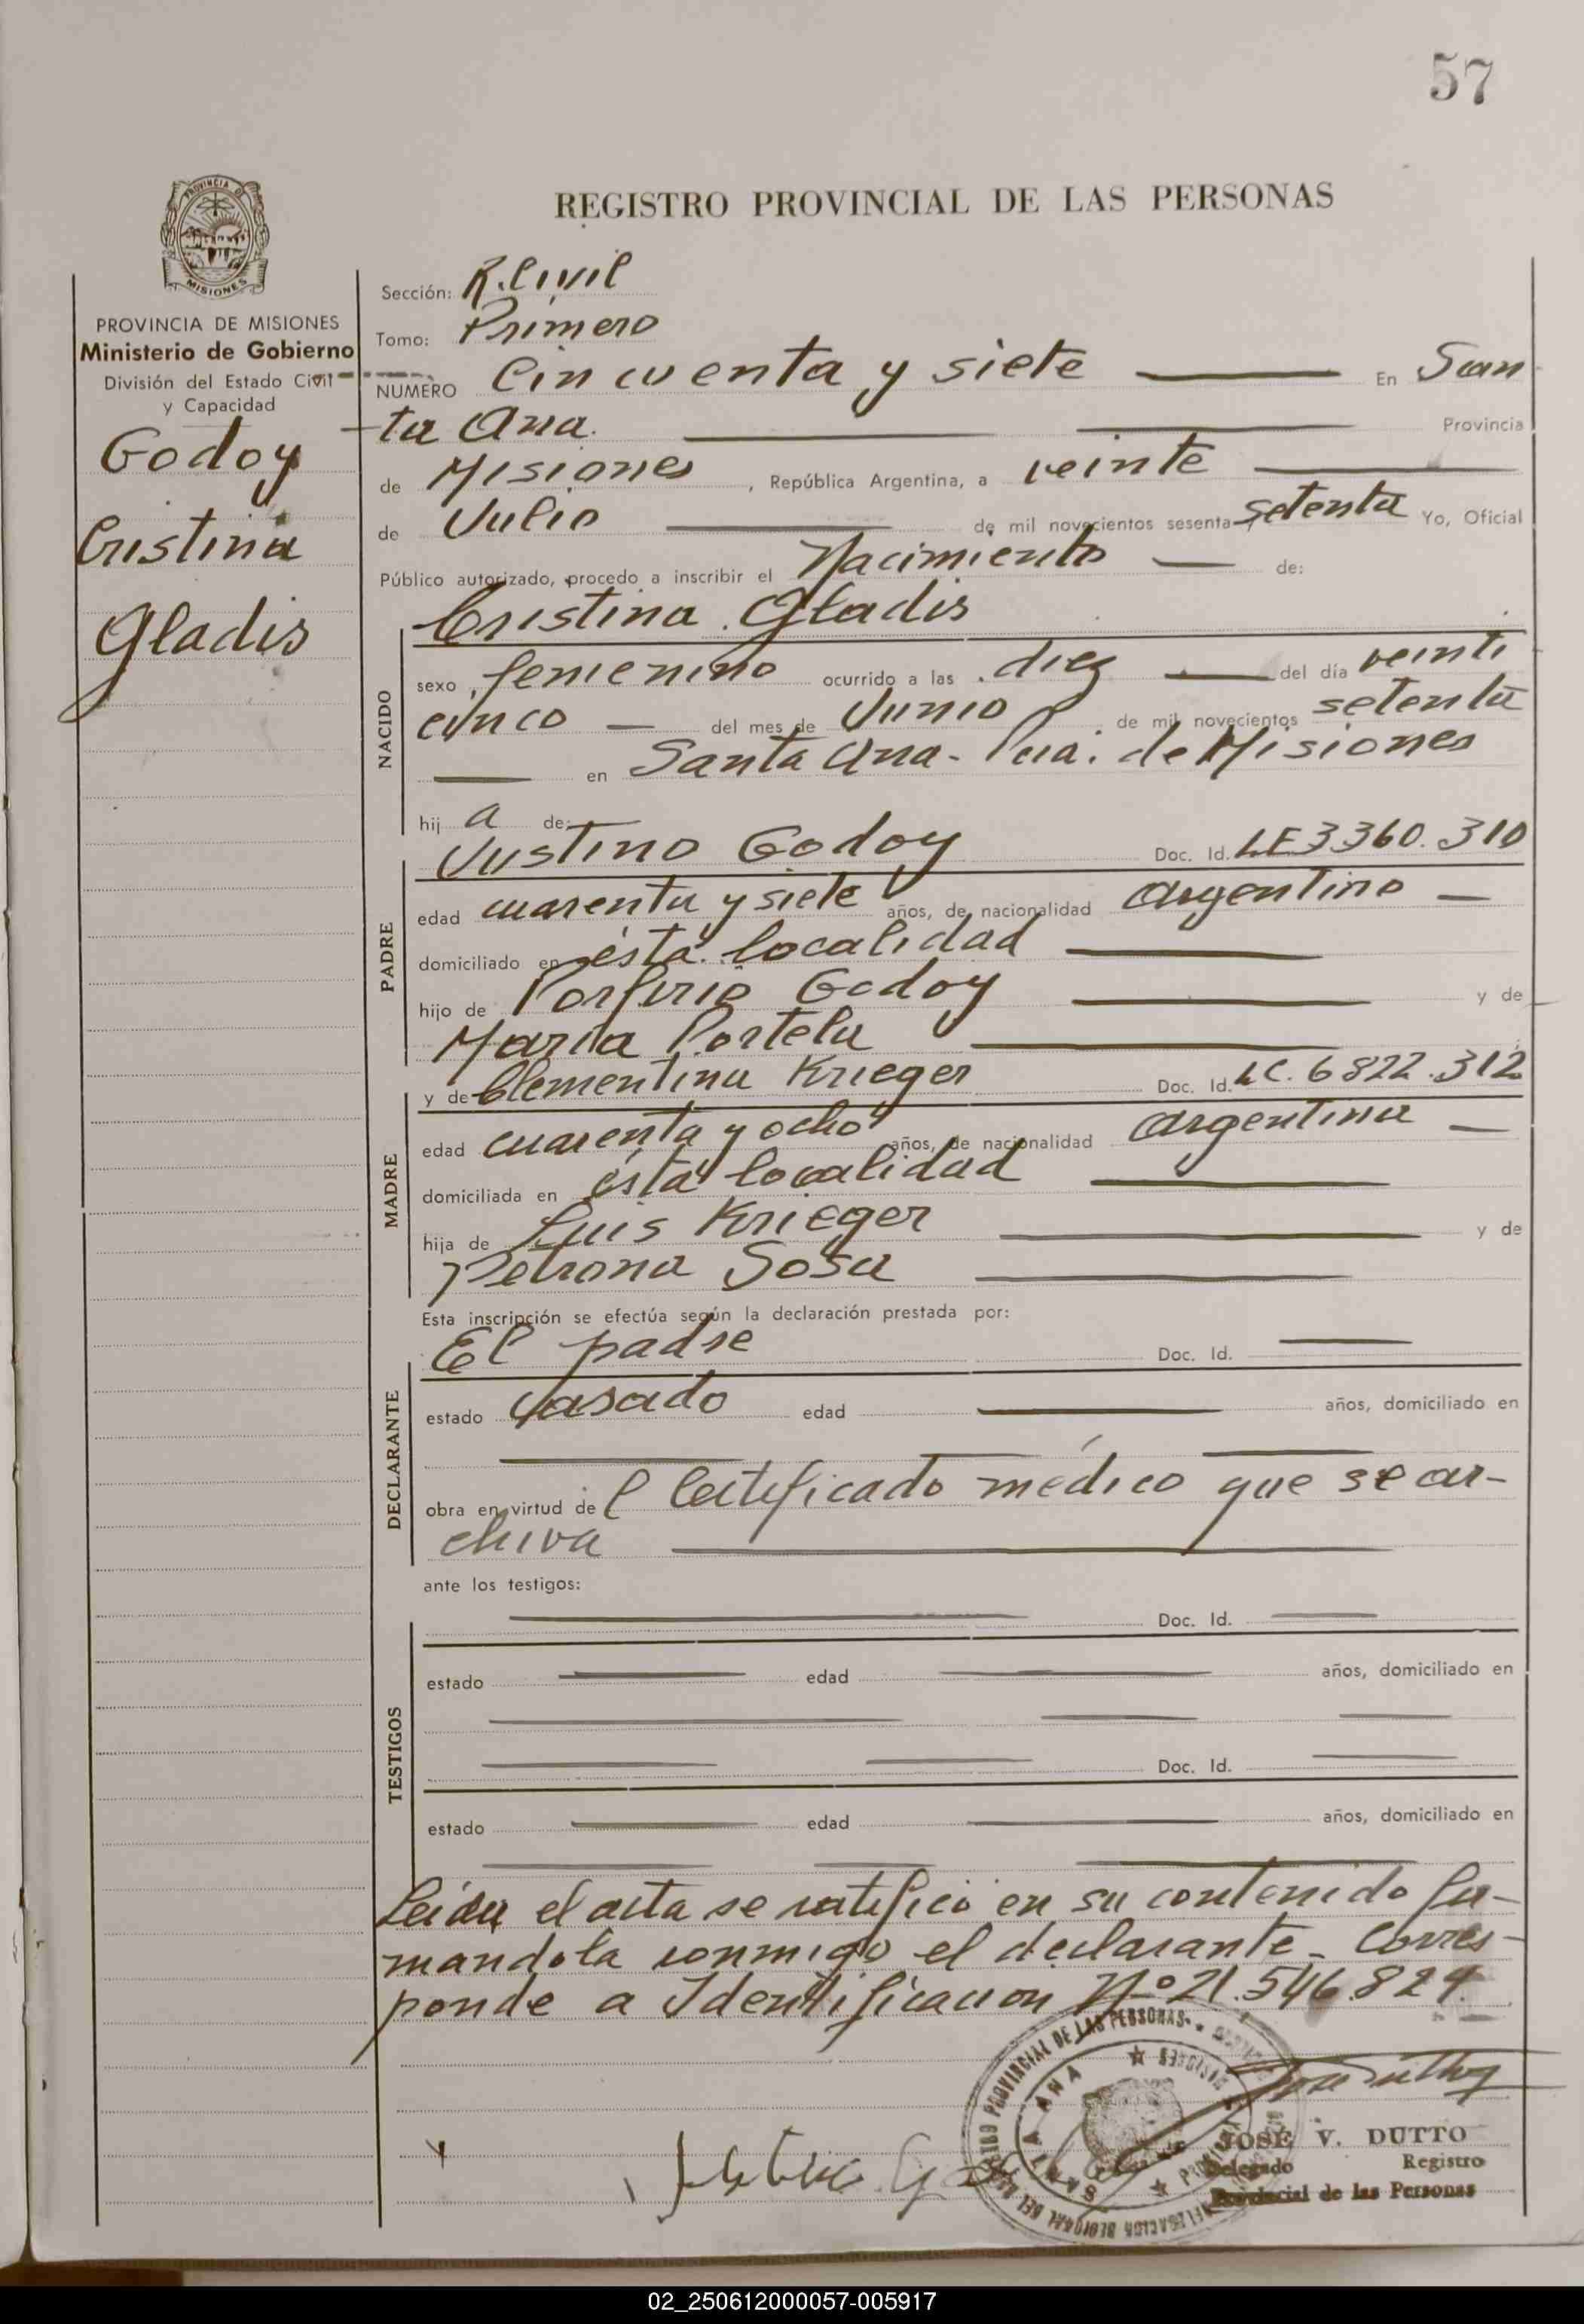 57
REGISTRO PROVINCIAL DE LAS PERSONAS
PROVINCIA DE
MISIONES
PROVINCIA DE MISIONES
Ministerio de Gobierno
División del Estado Civil
y Capacidad
Godoy
Cristina
Gladis
Sección: R. Civil
Tomo: Primero
NUMERO Cincuenta y siete En San
ta Ana. Provincia
de Misiones, República Argentina, a veinte
de Julio de mil novecientos sesenta setenta Yo, Oficial
Público autorizado, procedo a inscribir el Nacimiento de:
Cristina Gladis
NACIDO
sexo femenino ocurrido a las diez del día veinti
cinco del mes de Junio de mil novecientos setenta
en Santa Ana - Pcia. de Misiones
hij a de:
Justino Godoy Doc. Id. LE 3360.310
PADRE
edad cuarenta y siete años, de nacionalidad argentino
domiciliado en ésta localidad
hijo de Porfirio Godoy y de
María Portela
y de Clementina Krieger Doc. Id. LC. 6822.312
MADRE
edad cuarenta y ocho años, de nacionalidad argentina
domiciliada en ésta localidad
hija de Luis Krieger y de
Petrona Sosa
Esta inscripción se efectúa según la declaración prestada por:
El padre Doc. Id.
DECLARANTE
estado casado edad años, domiciliado en
obra en virtud de l Certificado médico que se ar-
chiva
ante los testigos:
Doc. Id.
TESTIGOS
estado edad años, domiciliado en
Doc. Id.
estado edad años, domiciliado en
Leída el acta se ratificó en su contenido fir-
mandola conmigo el declarante - Corres-
ponde a Identificacion Nº 21.546.824.
SANTA ANA
JOSE V. DUTTO
Delegado Registro
Provincial de las Personas
02_250612000057-005917